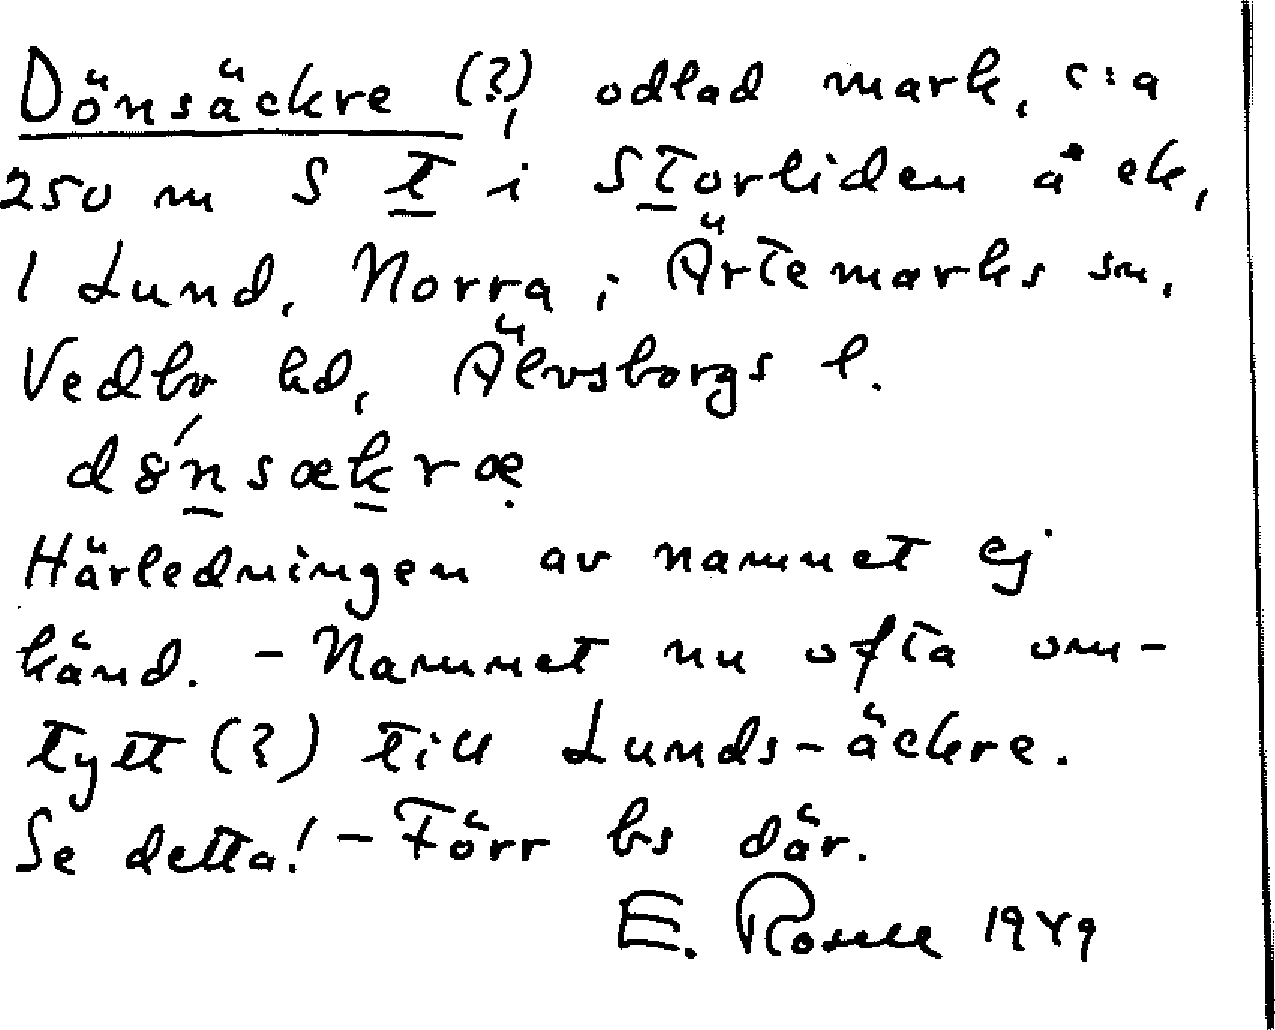 Dönsäckre (?), odlad mark, c:a
250 m S t i Storliden å ek,
1 Lund, Norra, i Ärtemarks sn,
Vedbo hd, Älvsborgs l.
dǿnsækræ̣
Härledningen av namnet ej
känd. - Namnet nu ofta om-
tytt (?) till Lunds-äckre.
Se detta! - Förr bs där.
E. Rosell 1949